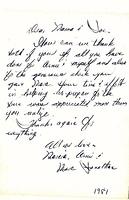 Dear Norma & Joe.
How can we thank
both of you for all you have
done for Arni, myself and also
for the generous check you
gave Dave. Your time & effort
in helping to prepare for the
was appreciated more than
you realize.
Thanks again for
everything.
All our love
Arni &
Dave
1951